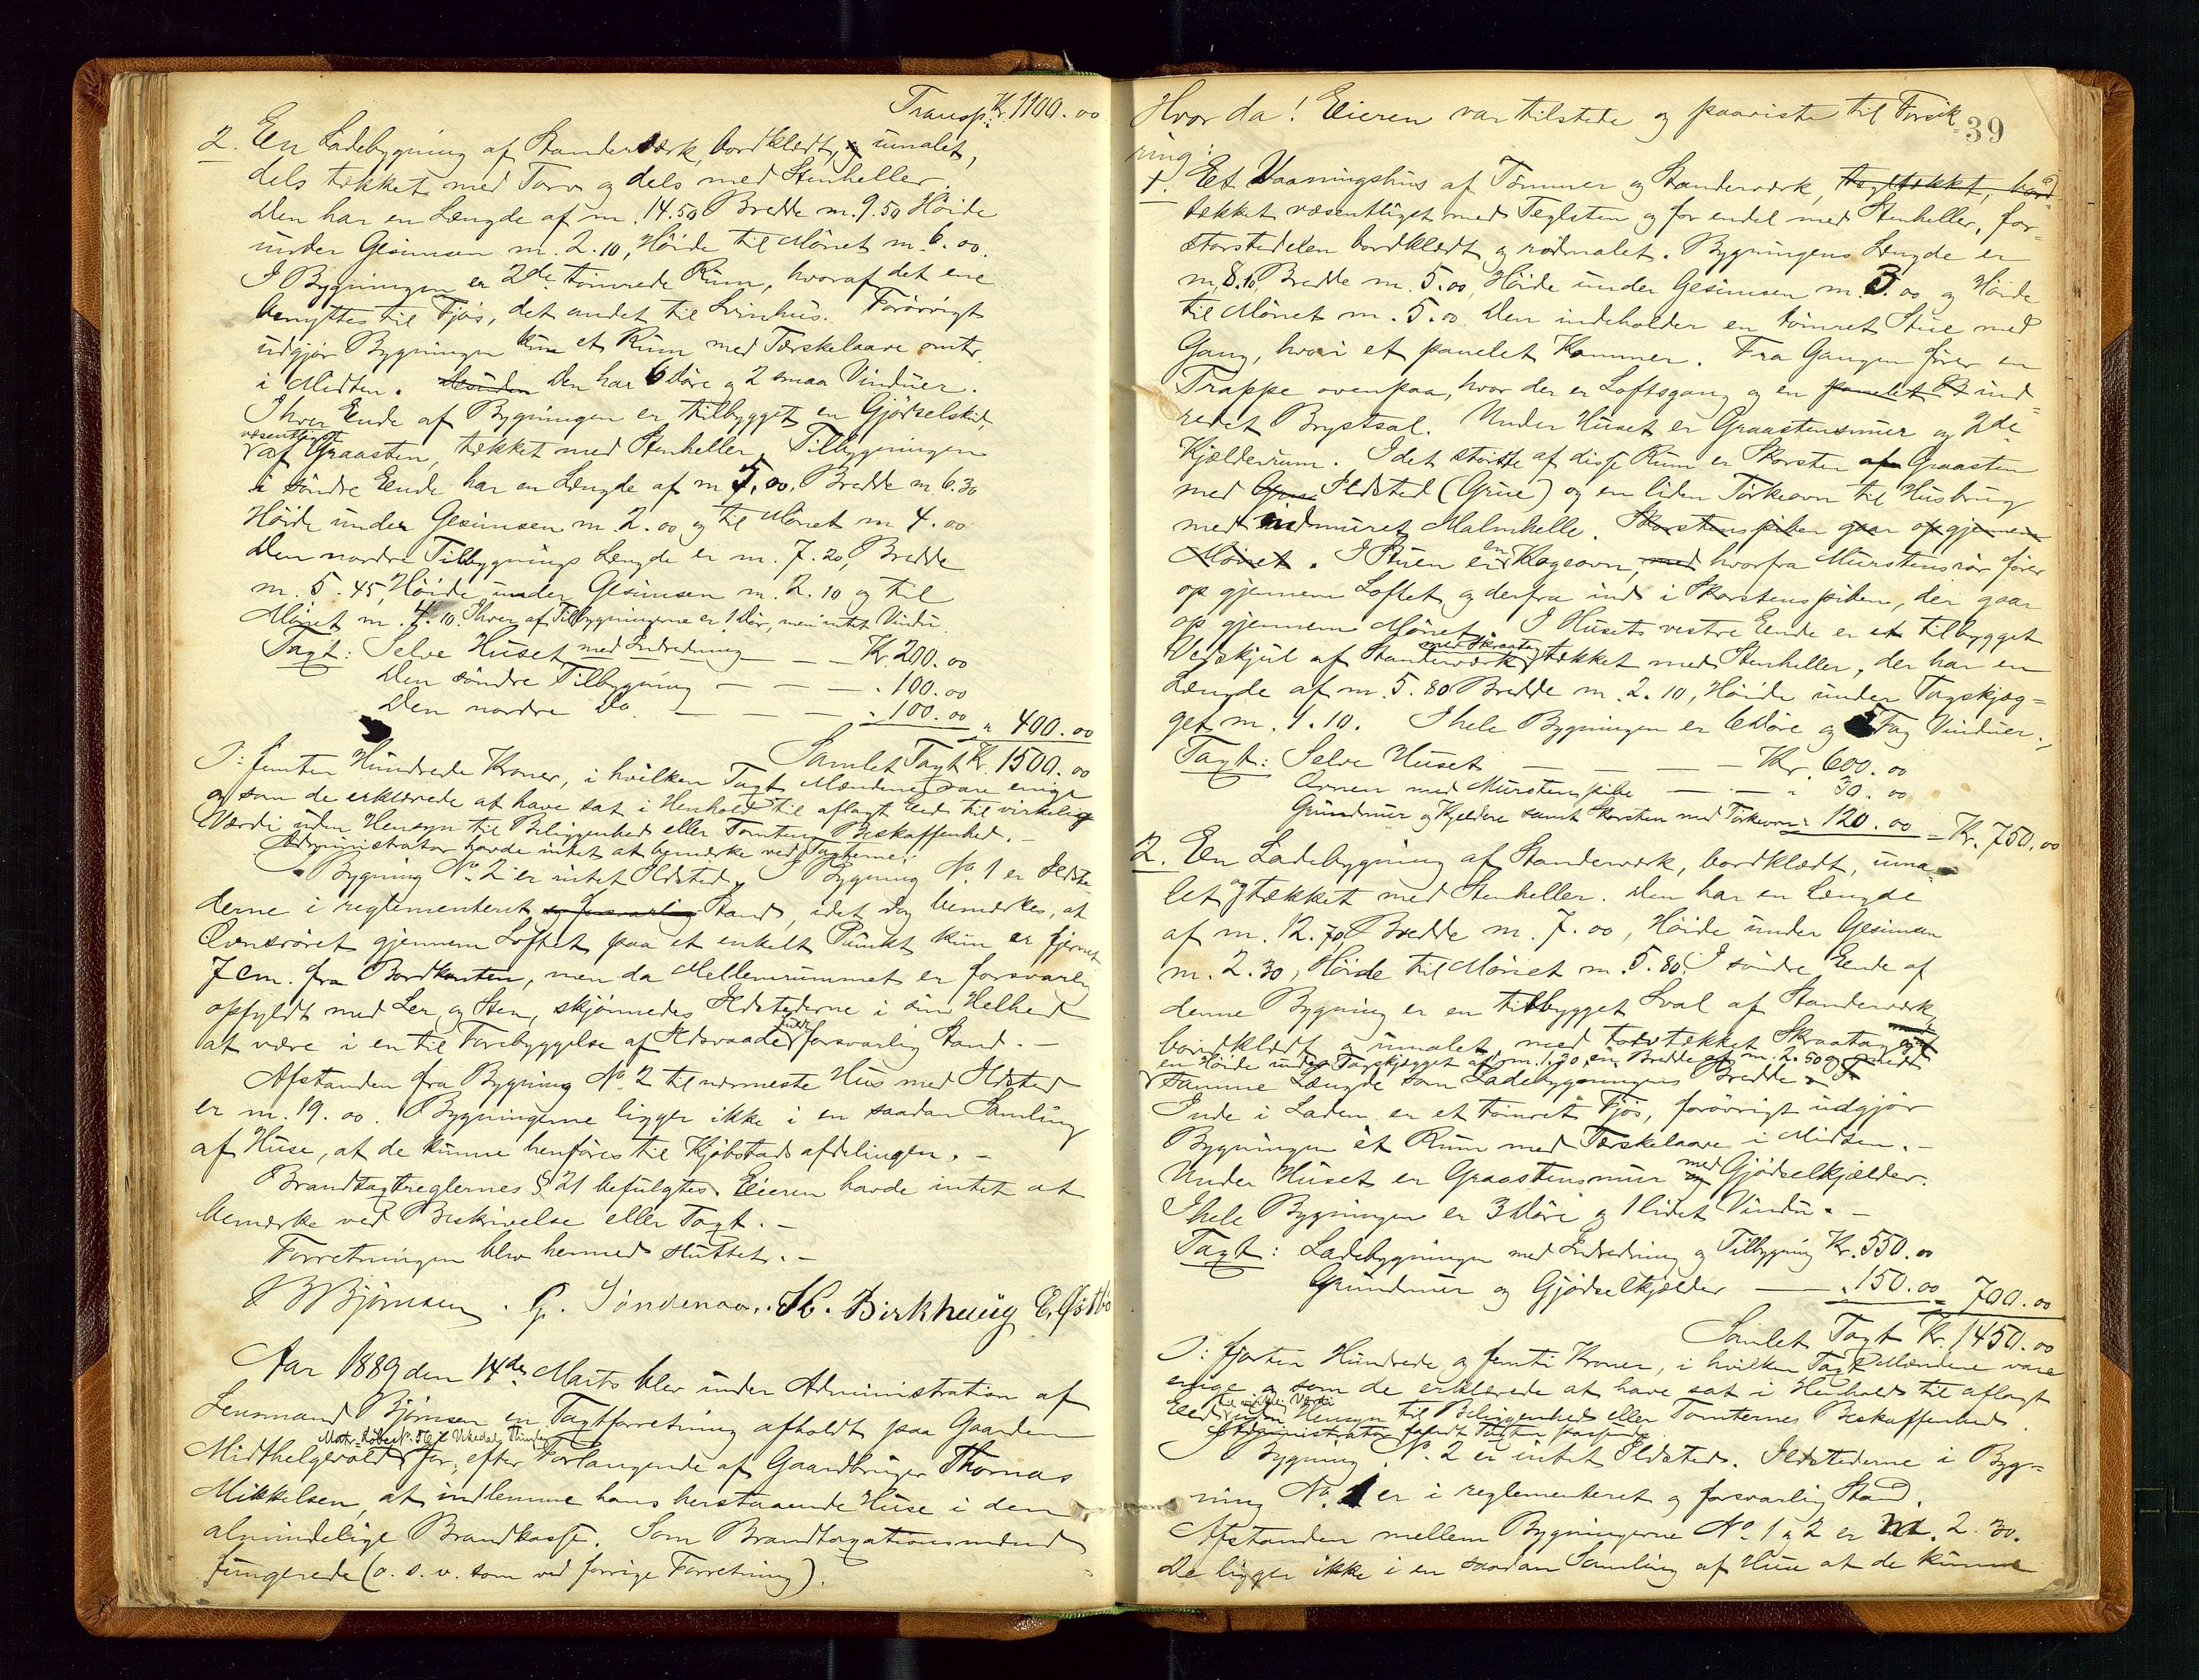 Transp. Kr. 1100.00
2. En Ladebygning af Standerværk, bordklædt, og umalet,
dels tækket med Torv og dels med Stenheller.
Den har en Længde af m. 14.50 Bredde m. 9.50 Höide
under Gesimsen m. 2.10, Höide til Mönet m. 6.00.
I Bygningen er 2de tömrede Rum, hvoraf det ene
benyttes til Fjös, det andet til Svinhus. Forövrigt
udgjör Bygningen kun et Rum med Tærskelaave omtr.
i Midten. Den har 6 Döre og 2 smaa Vinduer.
I hver Ende af Bygningen er tilbygget en Gjödselskjul
væsentligst
af Graasten, tækket med Stenheller. Tilbygningen
i söndre Ende har en Længde af m 5.00. Bredde m 6.30
Höide under Gesimsen m 2.00 og til Mönet m 4.00
Den nordre Tilbygnings Længde er m. 7.20, Bredde
m. 5.45, Höide under Gesimsen m. 2.10 og til
Mönet m. 4.10. I hver af Tilbygningerne er 1 Dör, men intet Vindu.
Taxt: Selve Huset med Indredning — — Kr. 200.00
Den söndre Tilbygning — — — " 100.00
Den nordre Do. — — — " 100.00 = " 400.00
Samlet Taxt Kr. 1500.00
I: femten Hundrede Kroner, i hvilken Taxt Mændene vare enige
og som de erklærede at have sat i Henhold til aflagt Eed til virkelig
Værdi uden Hensyn til Beliggenhed eller Tomtens Beskaffenhed. —
Administrator havde intet at bemærke ved Taxterne.
I Bygning No. 2 er intet Ildsted. I Bygning No. 1 er Ildste
derne i reglementeret og forsvarlig Stand, idet dog bemærkes, at
Ovnsröret gjennem Loftet paa et enkelt Punkt kun er fjernet
7 cm. fra Bordkanten, men da Mellemrummet er forsvarlig
opfyldt med Ler og Sten, skjönnedes Ildstederne i sin Helhed
at være i en til Forebyggelse af Ildsvaade fuldt forsvarlig Stand. —
Afstanden fra Bygning No. 2 til nærmeste Hus med Ildsted
er m. 19.00. Bygningerne ligger ikke i en saadan Samling
af Huse, at de kunne henföres til Kjöbstadsafdelingen. —
Brandtaxtreglernes § 21 befulgtes. Eieren havde intet at
bemærke ved Beskrivelse eller Taxt. —
Forretningen blev hermed sluttet. —
B Bjömsen. G. Söndenaa. H. Birkhaug E. Östbö
Aar 1889 den 14de Marts blev under Administration af
Lensmand Björnsen en Taxtforretning afholdt paa Gaarden
Matr. Löbe No. 56 f Vikedals Thinglag
Midthelgevold for, efter Forlangende af Gaardbruger Thomas
Mikkelsen, at indlemme hans herstaaende Huse i den
almindelige Brandkasse. Som Brandtaxationsmænd
fungerede (o. s. v. som ved forrige Forretning).
39
Hvor da! Eieren var tilstede og paaviste til Forsik-
ring:
1. Et Vaaningshus af Tömmer og Standerværk, teglt­ækket, bord-
tækket væsentligst med Teglsten og for endel med Stenheller, for-
störstedelen bordklædt og rödmalet. Bygningens Længde er
m. 8.10, Bredde m. 5.00, Höide under Gesimsen m. 3.00 og Höide
til Mönet m. 5.00. Den indeholder en tömret Stue med
Gang, hvori et panelet Kammer. Fra Gangen förer en
Trappe ovenpaa, hvor der er Loftsgang og en panelet B ind-
redet Brystsal. Under Huset er Graastensmur og 2de
Kjælderrum. I det störste af disse Rum er Skorsten af Graasten
med Grue Ildsted (Grue) og en liden Törkeovn til Husbrug
med indmuret Malmhelle. Skorstenspiben gaar op gjennem
Mönet. I Stuen er en Kogeovn, med hvorfra Murstensrör förer
op gjennem Loftet og derfra ind i Skorstenspiben, der gaar
op gjennem Mönet. I Husets vestre Ende er et tilbygget
med Skraatag
Vedskjul af Standerværk, tækket med Stenheller, der har en
Længde af m. 5.80 Bredde m. 2.10, Höide under Tagskjæg-
get m. 1.10. I hele Bygningen er 6 Döre og 5 Fag Vinduer.
Taxt: Selve Huset — — — — Kr. 600.00
Ovnen med Murstenspibe — — — " 30.00
Grundmur og Kjeldere samt Skorsten med Törkeovn " 120.00 = Kr. 750.00
2. En Ladebygning af Standerværk, bordklædt, uma-
let og tækket med Stenheller. Den har en Længde
af m. 12.70, Bredde m. 7.00, Höide under Gesimsen
m. 2.30, Höide til Mönet m. 5.80. I söndre Ende af
denne Bygning er en tilbygget Sval af Standerværk,
bordklædt og umalet, med torvtækket Skraatag
en Höide under Tagskjægget af m. 1.30, en Bredde af m. 2.50 og
samme Længde som Ladebygningens Bredde.
Inde i Laden er et tömret Fjös, forövrigt udgjör
Bygningen et Rum med Tærskelaave i Midten. —
Under Huset er Graastensmur med Gjödselkjælder.
I hele Bygningen er 3 Döre og 1 lidet Vindu. —
Taxt: Ladebygningen med Indredning og Tilbygning Kr. 550.00
Grundmur og Gjödselkjælder — " 150.00 = 700.00
Samlet Taxt Kr. 1450.00
I: fjorten Hundrede og femti Kroner, i hvilken Taxt Mændene vare
enige og som de erklærede at have sat i Henhold til aflagt
til virkelig Værdi
Eed uden Hensyn til Beliggenhed eller Tomternes Beskaffenhed
Administrator fandt Taxten passende.
I Bygning No. 2 er intet Ildsted. Ildstederne i Byg-
ning No. 1 er i reglementeret og forsvarlig Stand.
Afstanden mellem Bygningerne No. 1 og 2 er m. 2.30.
De ligger ikke i en saadan Samling af Huse at de kunne